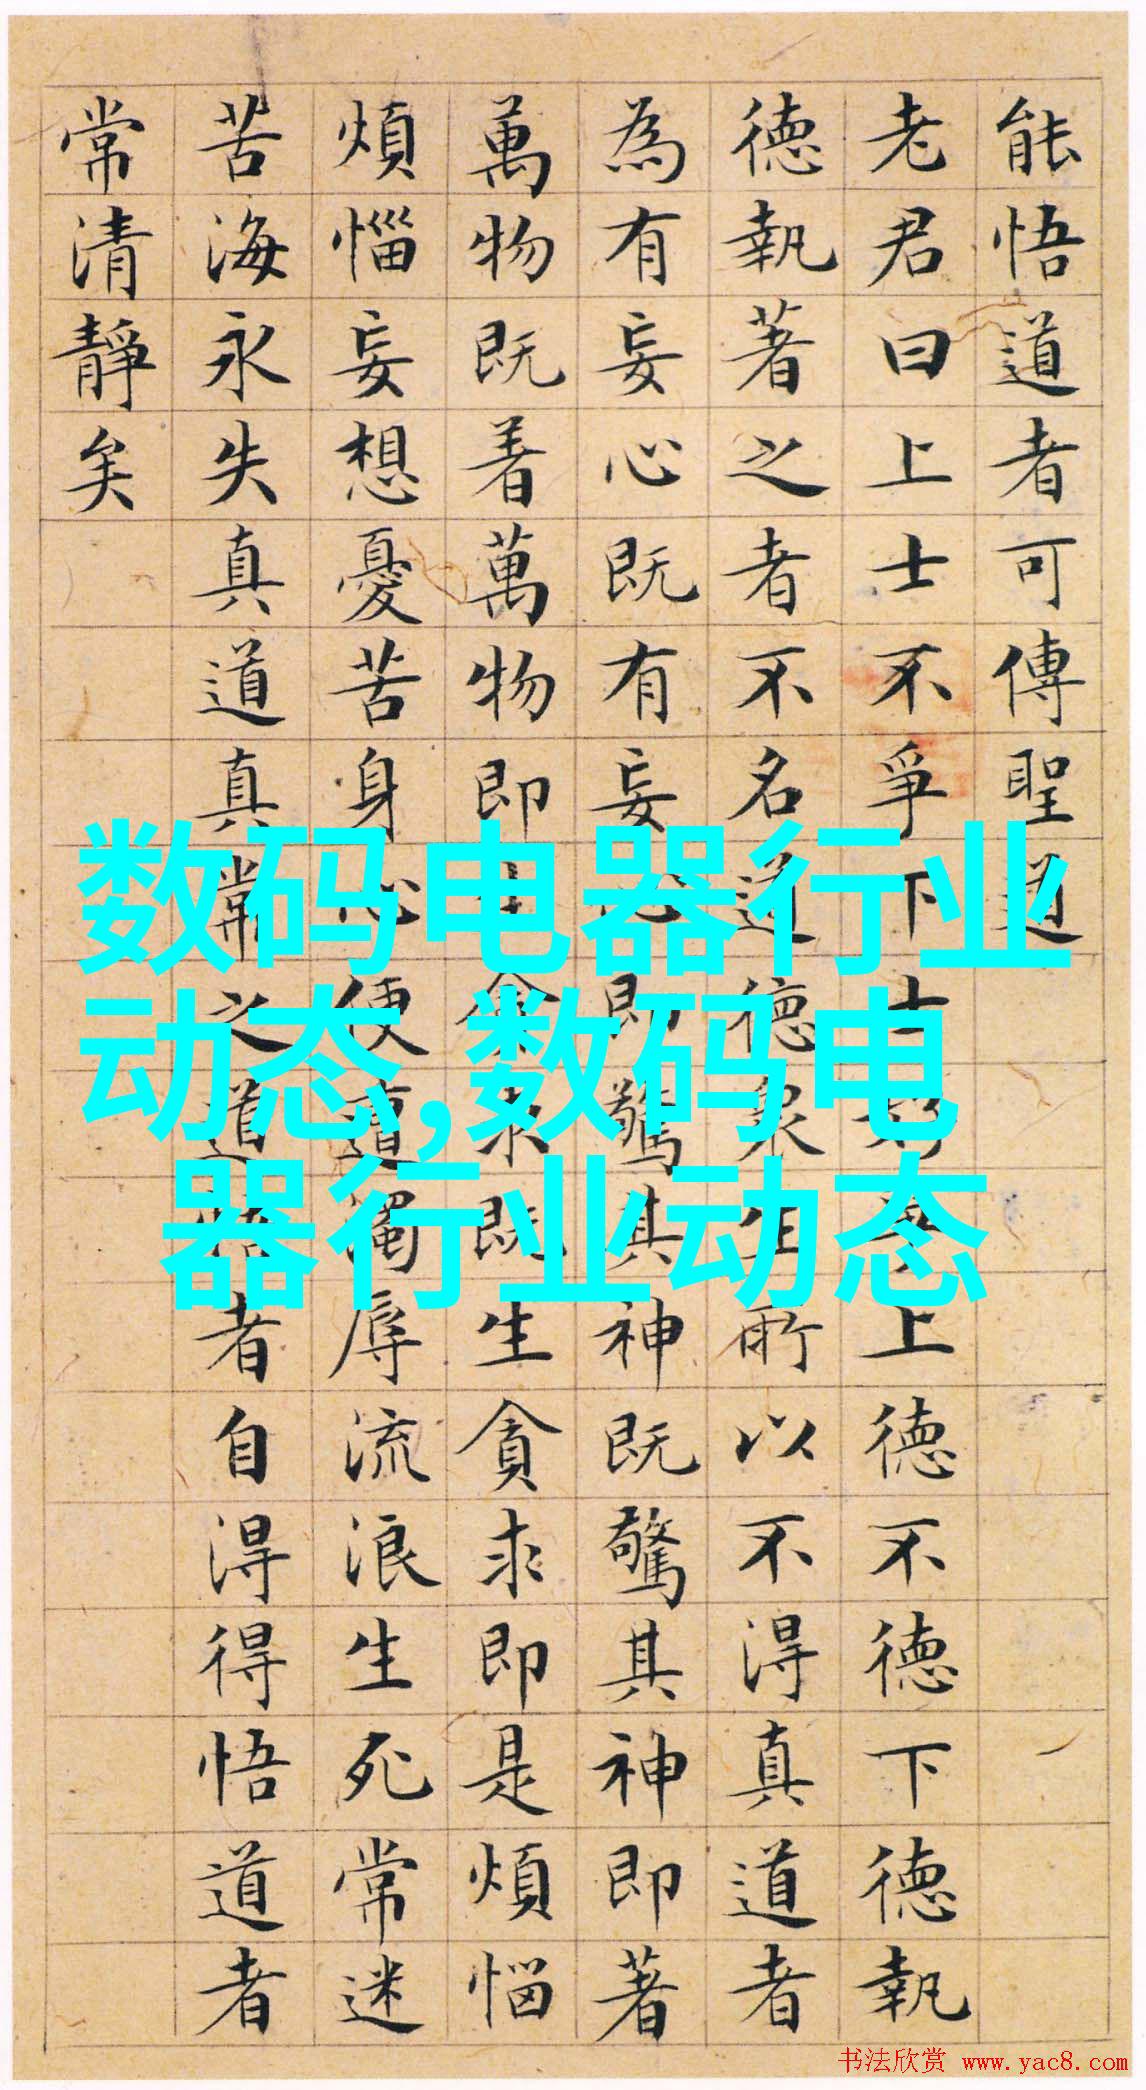 能悟道者可傳聖道
老君曰上士不爭下士好爭上德不德下德執
德執著之者不名道德眾生所以不得真道者
為有妄心既有妄心即驚其神既驚其神即著
萬物既着萬物即生貪求既生貪求即是煩惱
煩惱妄想憂苦身心便遭濁辱流浪生死常迷
苦海永失真道真常之道悟者自得得悟道者
常清靜矣
数码电器行业
动态,数码电
器行业动态
书法欣赏 www.yac8.com